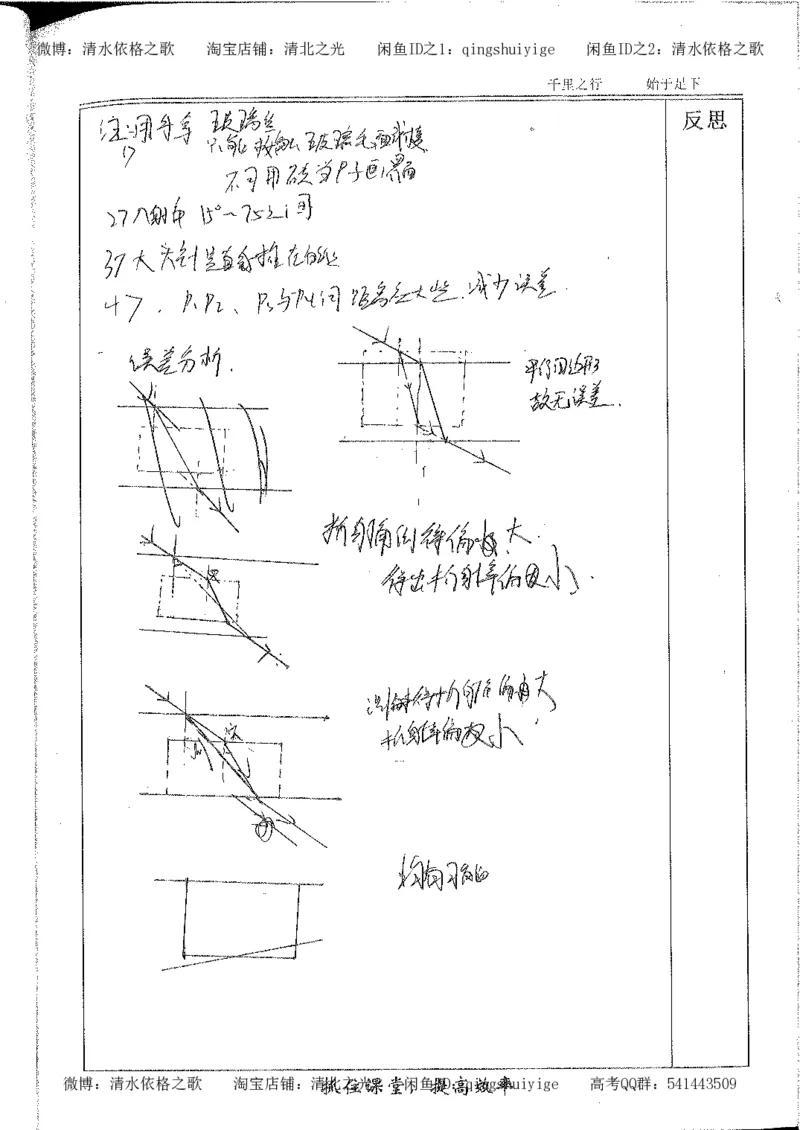 微博：清水依格之歌 淘宝店铺：清北之光 闲鱼ID之1：qingshuiyige 闲鱼ID之2：清水依格之歌
千里之行 始于足下
反思
注：用手拿
1>
只能接触玻璃毛面或棱
不可用砖当尺子画界面
2>入射角15°～75°之间
3>大头针竖直插在白纸
4>. P₁P₂、P₃与P₄间距离应大些.减少误差.
误差分析.
平行四边形
故无误差.
折射角测得偏大.
得出折射率偏小.
测得折射角偏大
折射率偏小
均有可能
抓住课堂，提高效率
微博：清水依格之歌 淘宝店铺：清北之光 闲鱼ID：qingshuiyige 高考QQ群：541443509